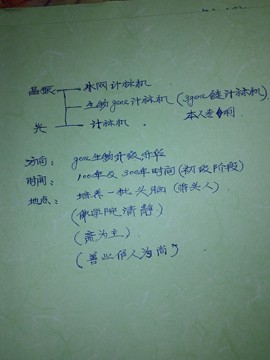 晶振 水网计标机
生物gene计标机(3gene链计标机)
本人专利
光 计标机
方向: gene生物升级阶段
时间: 100年及300年时间(初级阶段)
地点: 培养一批头脑(带头人)
(佛学院清静)
(斋为主)
(善业佰人为尚)